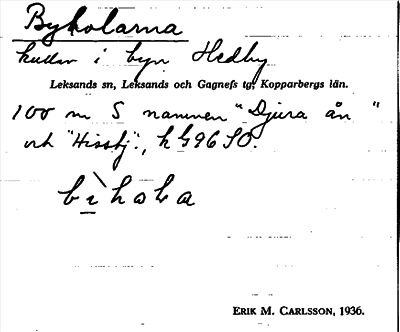 Bykolarna
kullen i byn Hedby
Leksands sn, Leksands och Gagnefs tg, Kopparbergs län.
100 m S namnen "Djura ån"
och "Hissbj.", k 596 SO.
ERIK M. CARLSSON, 1936.